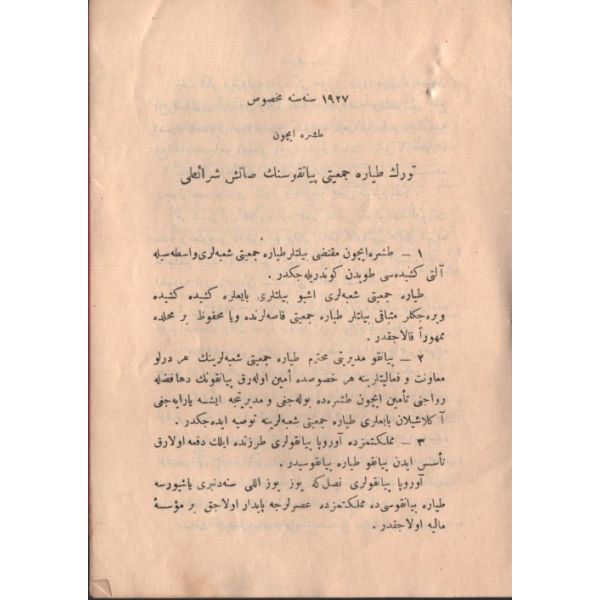 ١٩٢٧ سنه‌سنه مخصوص
طشره ایچون
تورك طیاره جمعیتی پیانقوسنك صاتش شرائطی
١ — طشره ایچون مقتضی بیلتلر طیاره جمعیتی شعبه‌لری واسطه‌سیله
آلتی كشیده‌سی طوپدن كوندریله‌جكدر.
طیاره جمعیتی شعبه‌لری اشبو بیلتلری بایعلره كشیده كشیده
ویره‌جكلر متباقی بیلتلر طیاره جمعیتی قاصه‌لرنده ویا محفوظ بر محلده
ممهوراً قالاجقدر.
٢ — پیانقو مدیریتی محترم طیاره جمعیتی شعبه‌لرینك هر درلو
معاونت و فعالیتلرینه هر خصوصده أمین اوله‌رق پیانقونك دها فضله
رواجنی تأمین ایچون طشره‌ده بوله‌جغی و مدیریتجه ایشه یارایه‌جغی
آكلاشیلان بایعلری طیاره جمعیتی شعبه‌لرینه توصیه ایده‌جكدر.
٣ — مملكتمزده آوروپا پیانقولری طرزنده ایلك دفعه اولارق
تأسس ایدن پیانقو طیاره پیانقوسیدر.
آوروپا پیانقولری نصل‌كه یوز یوز اللی سنه‌دنبری یاشیورسه
طیاره پیانقوسی‌ده مملكتمزده عصرلرجه پایدار اولاجق بر مؤسسۀ
مالیه اولاجقدر.